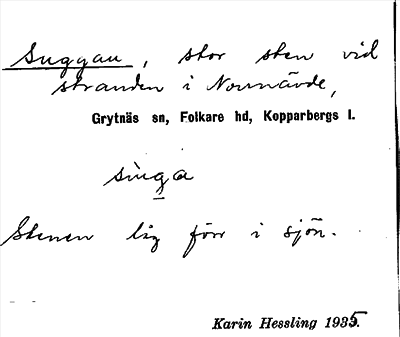 Suggan, stor sten vid
stranden i Norrnävde,
Grytnäs sn, Folkare hd, Kopparbergs l.
Stenen låg förr i sjön.
Karin Hessling 1935.